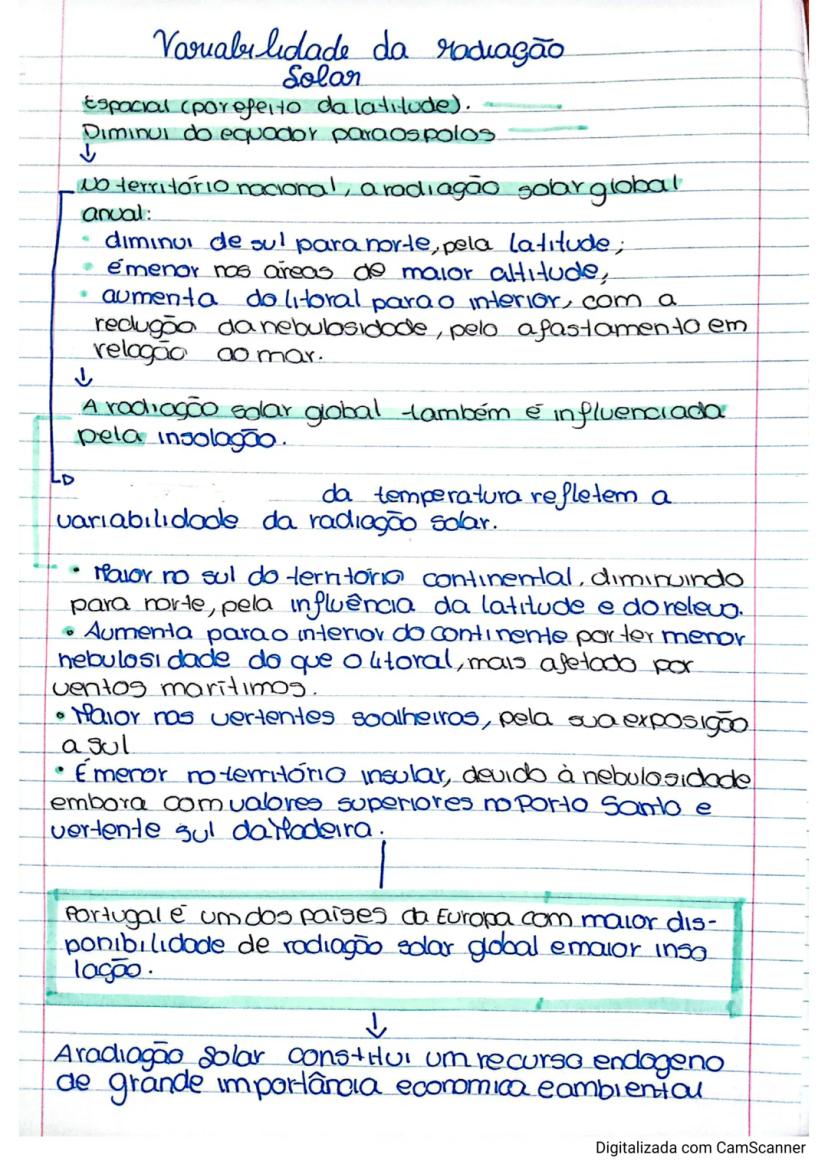 Variabilidade da radiação
Solar
Espacial (por efeito da latitude).
Diminui do equador para os polos
↓
No território nacional, a radiação solar global
anual:
• diminui de sul para norte, pela latitude;
• é menor nas áreas de maior altitude;
• aumenta do litoral para o interior, com a
redução da nebulosidade, pelo afastamento em
relação ao mar.
↓
A radiação solar global também é influenciada
pela insolação.
da temperatura refletem a
variabilidade da radiação solar.
• Maior no sul do território continental, diminuindo
para norte, pela influência da latitude e do relevo.
• Aumenta para o interior do continente por ter menor
nebulosidade do que o litoral, mais afetado por
ventos marítimos.
• Maior nas vertentes soalheiras, pela sua exposição
a sul
• É menor no território insular, devido à nebulosidade
embora com valores superiores no Porto Santo e
vertente sul da Madeira.
Portugal é um dos países da Europa com maior dis-
ponibilidade de radiação solar global e maior inso
lação.
↓
A radiação solar constitui um recurso endogeno
de grande importância economica e ambiental
Digitalizada com CamScanner